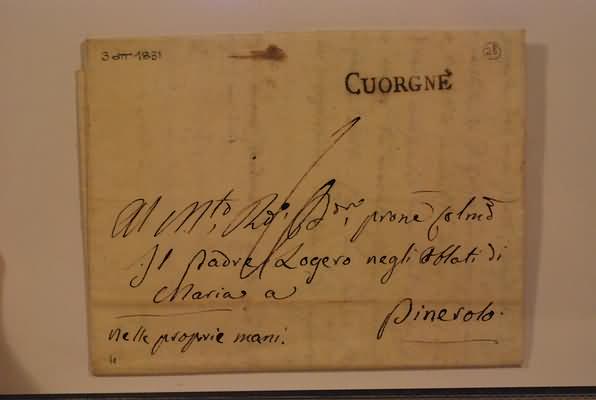 3 ott 1831
28
CUORGNÈ
Al M.to Rdo. Pdre, prone Colmo
Il Padre Logero negli Oblati di
Maria a
Pinerolo.
nelle proprie mani.